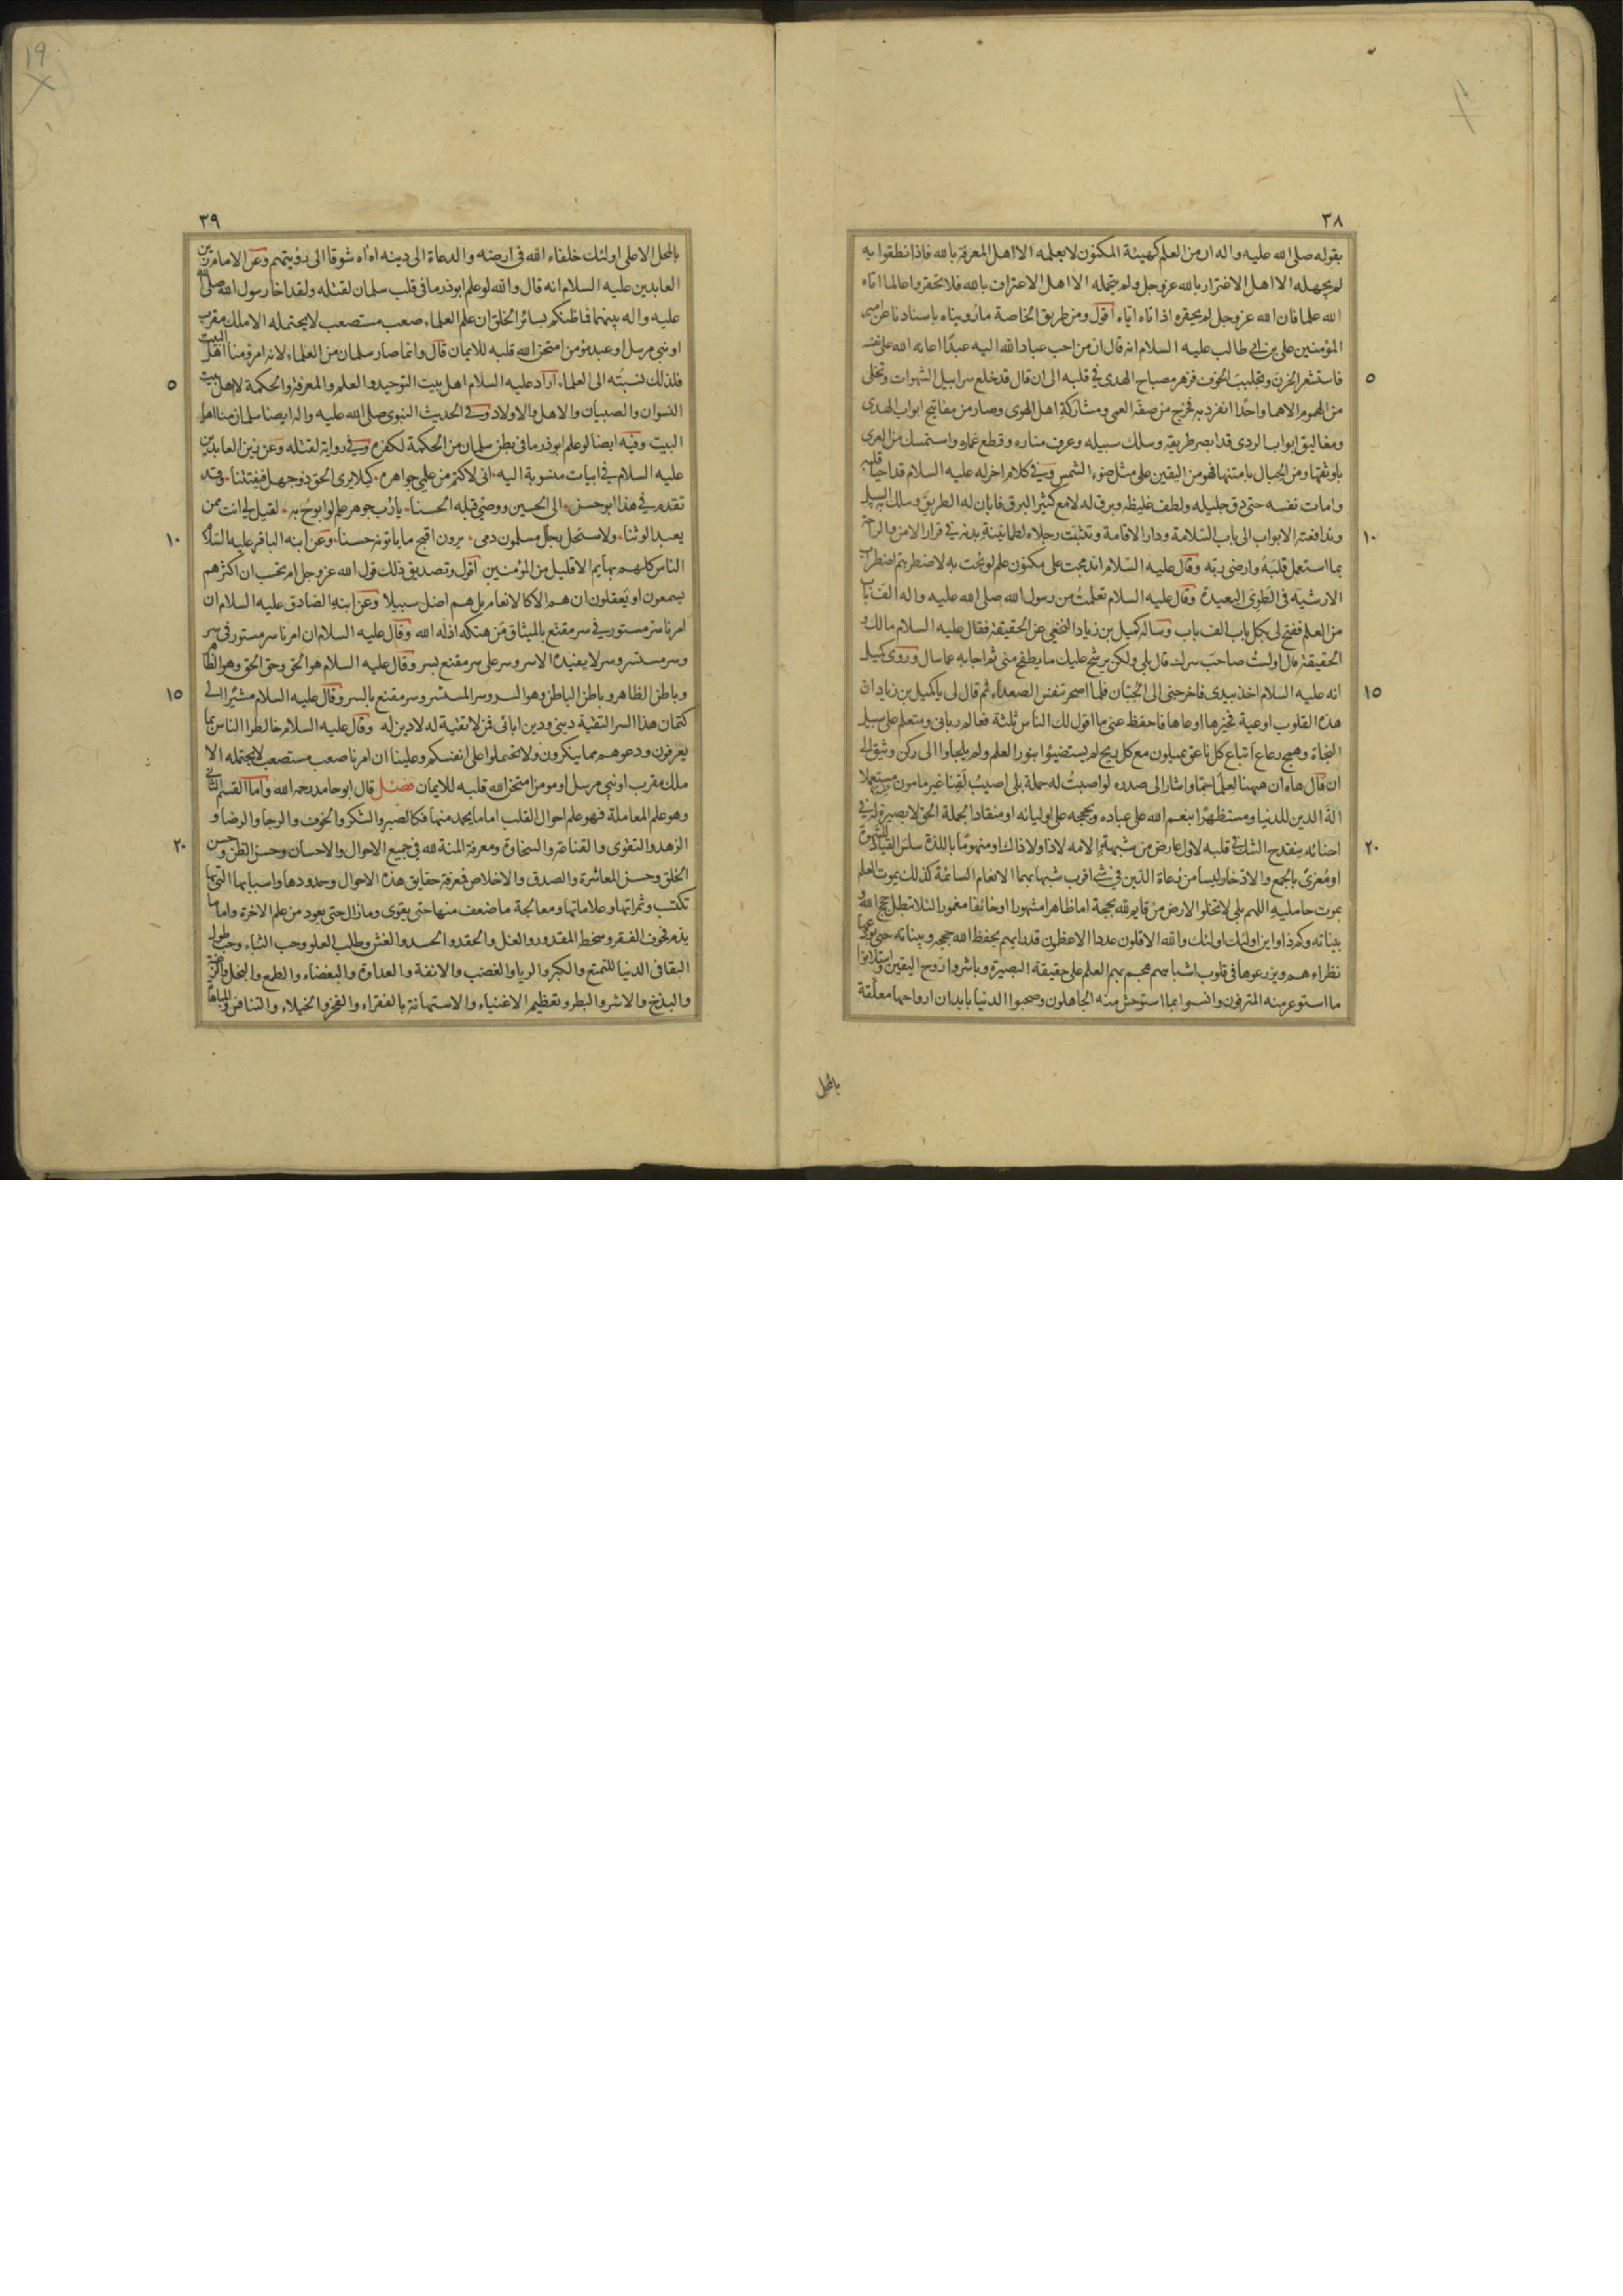 ٣٨
بقوله صلى الله عليه واله ان من العلم كهيئة المكنون لا يعلمه الا اهل المعرفة بالله فاذا نطقوا به
لم يجهله الا اهل الاغترار بالله عزوجل ولم يتحمله الا اهل الاعتراف بالله فلا تحقروا عالما اتاه
الله علما فان الله عزوجل لم يحقره اذ اتاه اياه اقول ومن طريق الخاصة ما رويناه باسنادنا عن امير
المؤمنين علي بن ابي طالب عليه السلام انه قال ان من احب عباد الله اليه عبدًا اعانه الله على نفسه
٥
فاستشعر الحزن وتجلبب الخوف فزهر مصباح الهدى في قلبه الى ان قال قد خلع سرابيل الشهوات وتخلى
من الهموم الا هما واحدًا انفرد به فخرج من صفة العمى ومشاركة اهل الهوى وصار من مفاتيح ابواب الهدى
ومغاليق ابواب الردى قد ابصر طريقه وسلك سبيله وعرف مناره وقطع غماره واستمسك من العرى
باوثقها ومن الحبال بامتنها فهو من اليقين على مثل ضوء الشمس وفي كلام اخر له عليه السلام قد احيا قلبه
وامات نفسه حتى دق جليله ولطف غليظه وبرق له لامع كثير البرق فابان له الطريق وسلك به السبيل
١٠
وتدافعته الابواب الى باب السلامة ودار الاقامة وتثبتت رجلاه لطمانينة بدنه في قرار الامن والراحة
بما استعمل قلبَهُ وارضى ربّه وقال عليه السلام اندمجت على مكنون علم لو بُحت به لاضطربتم اضطراب
الارشية في الطوى البعيدة وقال عليه السلام تعلمتُ من رسول الله صلى الله عليه واله الف باب
من العلم ففتح لى بكل باب الف باب وساله كميل بن زياد النخعي عن الحقيقة فقال عليه السلام مالك و
الحقيقة قال اولستُ صاحبَ سرك قال بلى ولكن يرشح عليك ما يطفح منى ثم اجابه عما سال وروى كميل
١٥
انه عليه السلام اخذ بيدى فاخرجنى الى الجبّان فلما اصحر تنفس الصعداء ثم قال لى يا كميل بن زياد ان
هذه القلوب اوعية فخيرها اوعاها فاحفظ عنى ما اقول لك الناس ثلثة فعالم ربانى ومتعلم على سبيل
النجاة وهمج رعاع اتباع كل ناعق يميلون مع كل ريح لم يستضيؤا بنور العلم ولم يلجاوا الى ركن وثيق الى
ان قال هاه ان ههنا لعلمًا جمًا واشار الى صدره لو اصبتُ له حملة بلى اصيبُ لَقِنا غير مامون عليه مستعملا
الة الدين للدنيا ومستظهرًا بنعم الله على عباده وبحججه على اوليائه او منقادا لحملة الحق لا بصيرة له في
٢٠
احنائه ينقدح الشك في قلبه لاول عارض من شبهةٍ الا مه لا ذا ولا ذاك او منهومًا باللذة سلس القياد للشهوة
او مُغرىً بالجمع والادّخار ليسا من رُعاة الدّين في شئ اقرب شبها بهما الانعام السائمة كذلك يموت العلم
بموت حامليه اللهم بلى لا تخلوا الارض من قايم لله بحجة اما ظاهرا مشهورا او خائفا مغمورا لئلا تبطل حجج الله و
بيناته وكم ذا واين اولئك اولئك والله الاقلون عددا الاعظمون قدرا بهم يحفظ الله حججه وبيناته حتى يودعوها
نظراءهم ويزرعوها في قلوب اشباههم هجم بهم العلم على حقيقة البصيرة وباشروا روح اليقين واستلانوا
ما استوعر منه المترفون وانسوا بما استوحش منه الجاهلون وصحبوا الدنيا بابدان ارواحها معلّقة
بالمحل
19
٣٩
بالمحل الاعلى اولئك خلفاء الله في ارضه والدعاة الى دينه اه اه شوقا الى رؤيتهم وعن الامام زين
العابدين عليه السلام انه قال والله لو علم ابوذر ما فى قلب سلمان لقتله ولقد اخا رسول الله صلى الله
عليه واله بينهما فما ظنكم بسائر الخلق ان علم العلماء صعب مستصعب لا يحتمله الا ملك مقرب
او نبى مرسل او عبد مؤمن امتحن الله قلبه للايمان قال وانما صار سلمان من العلماء لانه امرؤ منا اهل البيت
٥
فلذلك نسبتُه الى العلماء اراد عليه السلام اهل بيت التوحيد والعلم والمعرفة والحكمة لا اهل بيت
النسوان والصبيان والاهل والاولاد وفي الحديث النبوى صلى الله عليه واله ايضا سلمان منا اهل
البيت وفيه ايضا لو علم ابوذر ما فى بطن سلمان من الحكمة لكفره وفي رواية لقتله وعن زين العابدين
عليه السلام في ابيات منسوبة اليه انى لاكتم من علمي جواهره كيلا يرى الحق ذو جهل فيفتتنا وقد
تقدم في هذا ابو حسن الى الحسين ووصّى قبله الحسنا يا رُب جوهر علم لو ابوحُ به لقيل لي انت ممن
١٠
يعبد الوثنا ولاستحل رجال مسلمون دمى يرون اقبح ما ياتونه حسنا وعن ابنه الباقر عليه السلام
الناس كلهم بهايم الا قليل من المؤمنين اقول وتصديق ذلك قول الله عزوجل ام تحسب ان اكثرهم
يسمعون او يعقلون ان هم الا كالانعام بل هم اضل سبيلا وعن ابنه الصّادق عليه السلام ان
امرنا سرٌ مستور في سر مقنّع بالميثاق مَن هتكه اذله الله وقال عليه السلام ان امرنا سر مستور فى سر
وسر مستسر وسر لا يفيده الا سر وسر على سر مقنع بسر وقال عليه السلام هو الحق وحق الحق وهو الظاهر
١٥
وباطن الظاهر وباطن الباطن وهو السر وسر المستسر وسر مقنع بالسر وقال عليه السلام مشيرًا الى
كتمان هذا السر التقية دينى ودين ابائى فمن لا تقية له لا دين له وقال عليه السلام خالطوا الناس بما
يعرفون ودعوهم مما ينكرون ولا تحملوا على انفسكم وعلينا ان امرنا صعب مستصعب لا يحتمله الا
ملك مقرب او نبي مرسل او مومن امتحن الله قلبه للايمان فصل قال ابو حامد رحمه الله واما القسم الثانى
وهو علم المعاملة فهو علم احوال القلب اما ما يحمد منها فكالصبر والشكر والخوف والرجا والرضا و
٢٠
الزهد والتقوى والقناعة والسخاوة ومعرفة المنة لله في جميع الاحوال والاحسان وحسن الظن وحسن
الخلق وحسن المعاشرة والصدق والاخلاص فمعرفة حقايق هذه الاحوال وحدودها واسبابها التى بها
تكتسب وثمراتها وعلاماتها ومعالجة ما ضعف منها حتى يقوى وما زال حتى يعود من علم الاخرة واما ما
يذم فخوف الفقر وسخط المقدور والغل والحقد والحسد والغش وطلب العلو وحب الثناء وحب طول
البقا فى الدنيا للتمتع والكبر والريا والغضب والانفة والعداوة والبغضاء والطمع والبخل والرغبة
والبذخ والاشر والبطر وتعظيم الاغنياء والاستهانة بالفقراء والفخر والخيلاء والتنافس والمباهاة